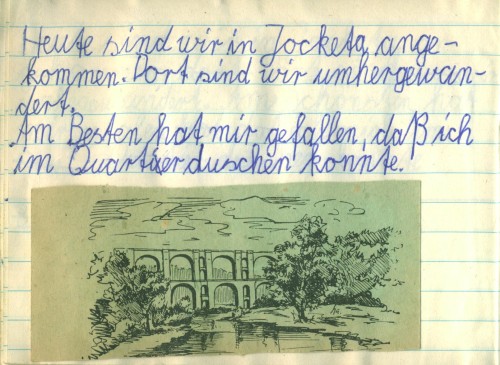 Heute sind wir in Jocketa ange-
kommen. Dort sind wir umhergewan-
dert.
Am Besten hat mir gefallen, daß ich
im Quartier duschen konnte.